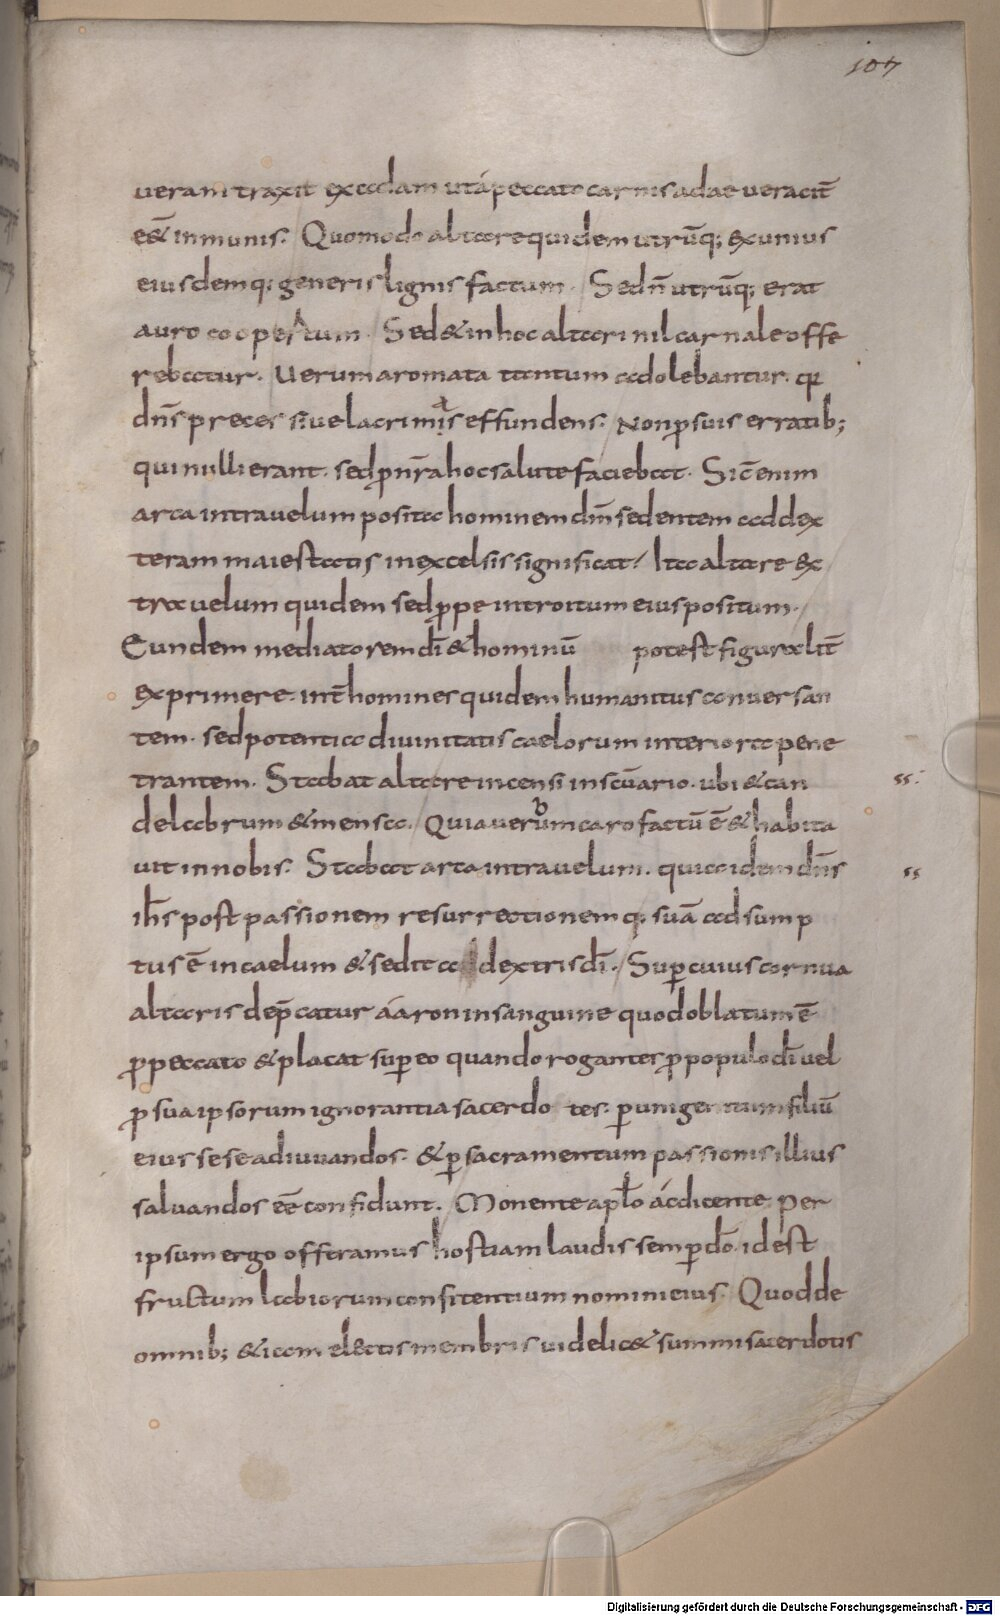 107
ueram traxit ex adam uta peccato carnis adae ueracit̄
eēt inmunis. Quomodo altare quidem utrūq; ex unius
eiusdemq; generis lignis factum. Sed n̄ utrūq; erat
auro coopertum. Sed & in hoc altari nil carnale offe
rebatur. Uerum aromata tantum adolebantur. qꝛ
dn̄s preces siue lacrimas effundens. Non ꝓ suis erratib;
qui nulli erant. sed ꝓ nr̄a hoc salute faciebat. Sic̄ enim
arca intra uelum posita hominem dn̄m sedentem ad dex
teram maiestatis in excelsis significat. Ita altare ex
tra uelum quidem sed ꝓpe introitum eius positum.
Eundem mediatorem dī & hominū potest figuralit̄
exprimere. int̄ homines quidem humanitus conuersan
tem. sed potentia diuinitatis caelorum interiora pene
trantem. Stabat altare incensi in sc̄uario. ubi & can
delabrum & mensa. Quia uerbum caro factū ē & habita
ss.
uit in nobis. Stabat arca intra uelum. quia idem dn̄s
ss
ih̄s post passionem resurrectionemq; suā adsump
tus ē in caelum & sedit a dextris dī. Suꝑ cuius cornua
altaris dep̄catur aaron in sanguine quod oblatum ē
ꝓ peccato & placat suꝑ eo quando rogantes ꝓ populo dī uel
ꝓ sua ipsorum ignorantia sacerdotes. ꝑ unigenitum filiū
eius sese adiuuandos. & ꝑ sacramentum passionis illius
saluandos eē confidunt. Monente apl̄o ac dicente. Per
ipsum ergo offeramus hostiam laudis semꝑ dō. id est
fructum labiorum confitentium nomini eius. Quod de
omnib; etiam electis membris uidelic& summi sacerdotis
Digitalisierung gefördert durch die Deutsche Forschungsgemeinschaft - DFG